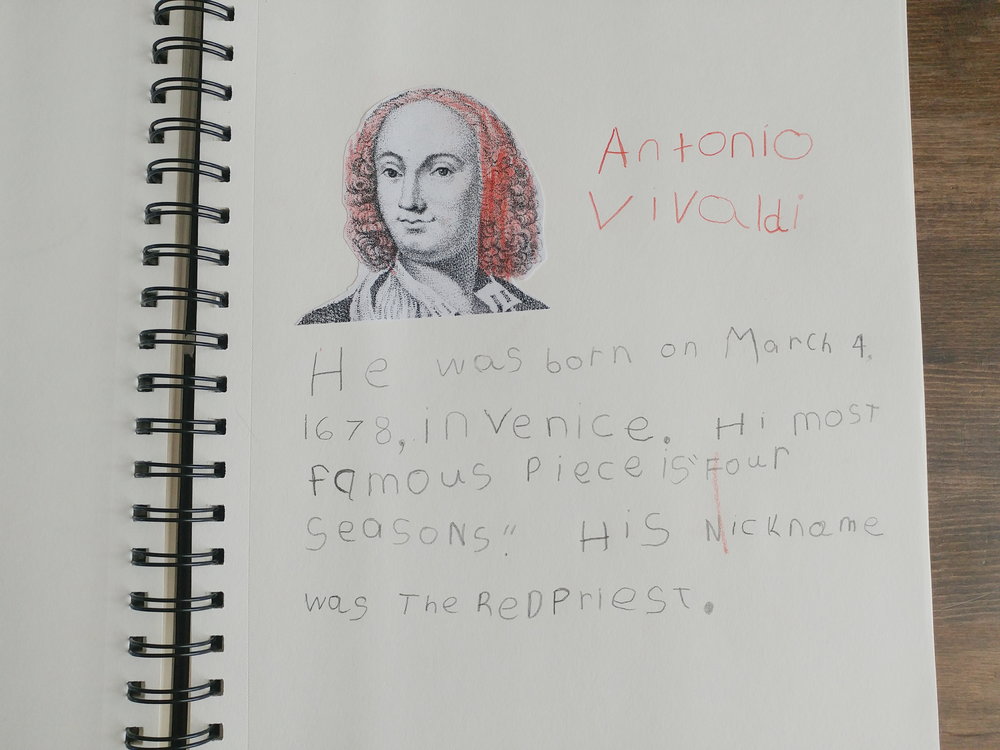 Antonio
Vivaldi
He was born on March 4,
1678, in Venice. Hi most
famous Piece is "Four
Seasons". HiS Nickname
was The ReD Priest.